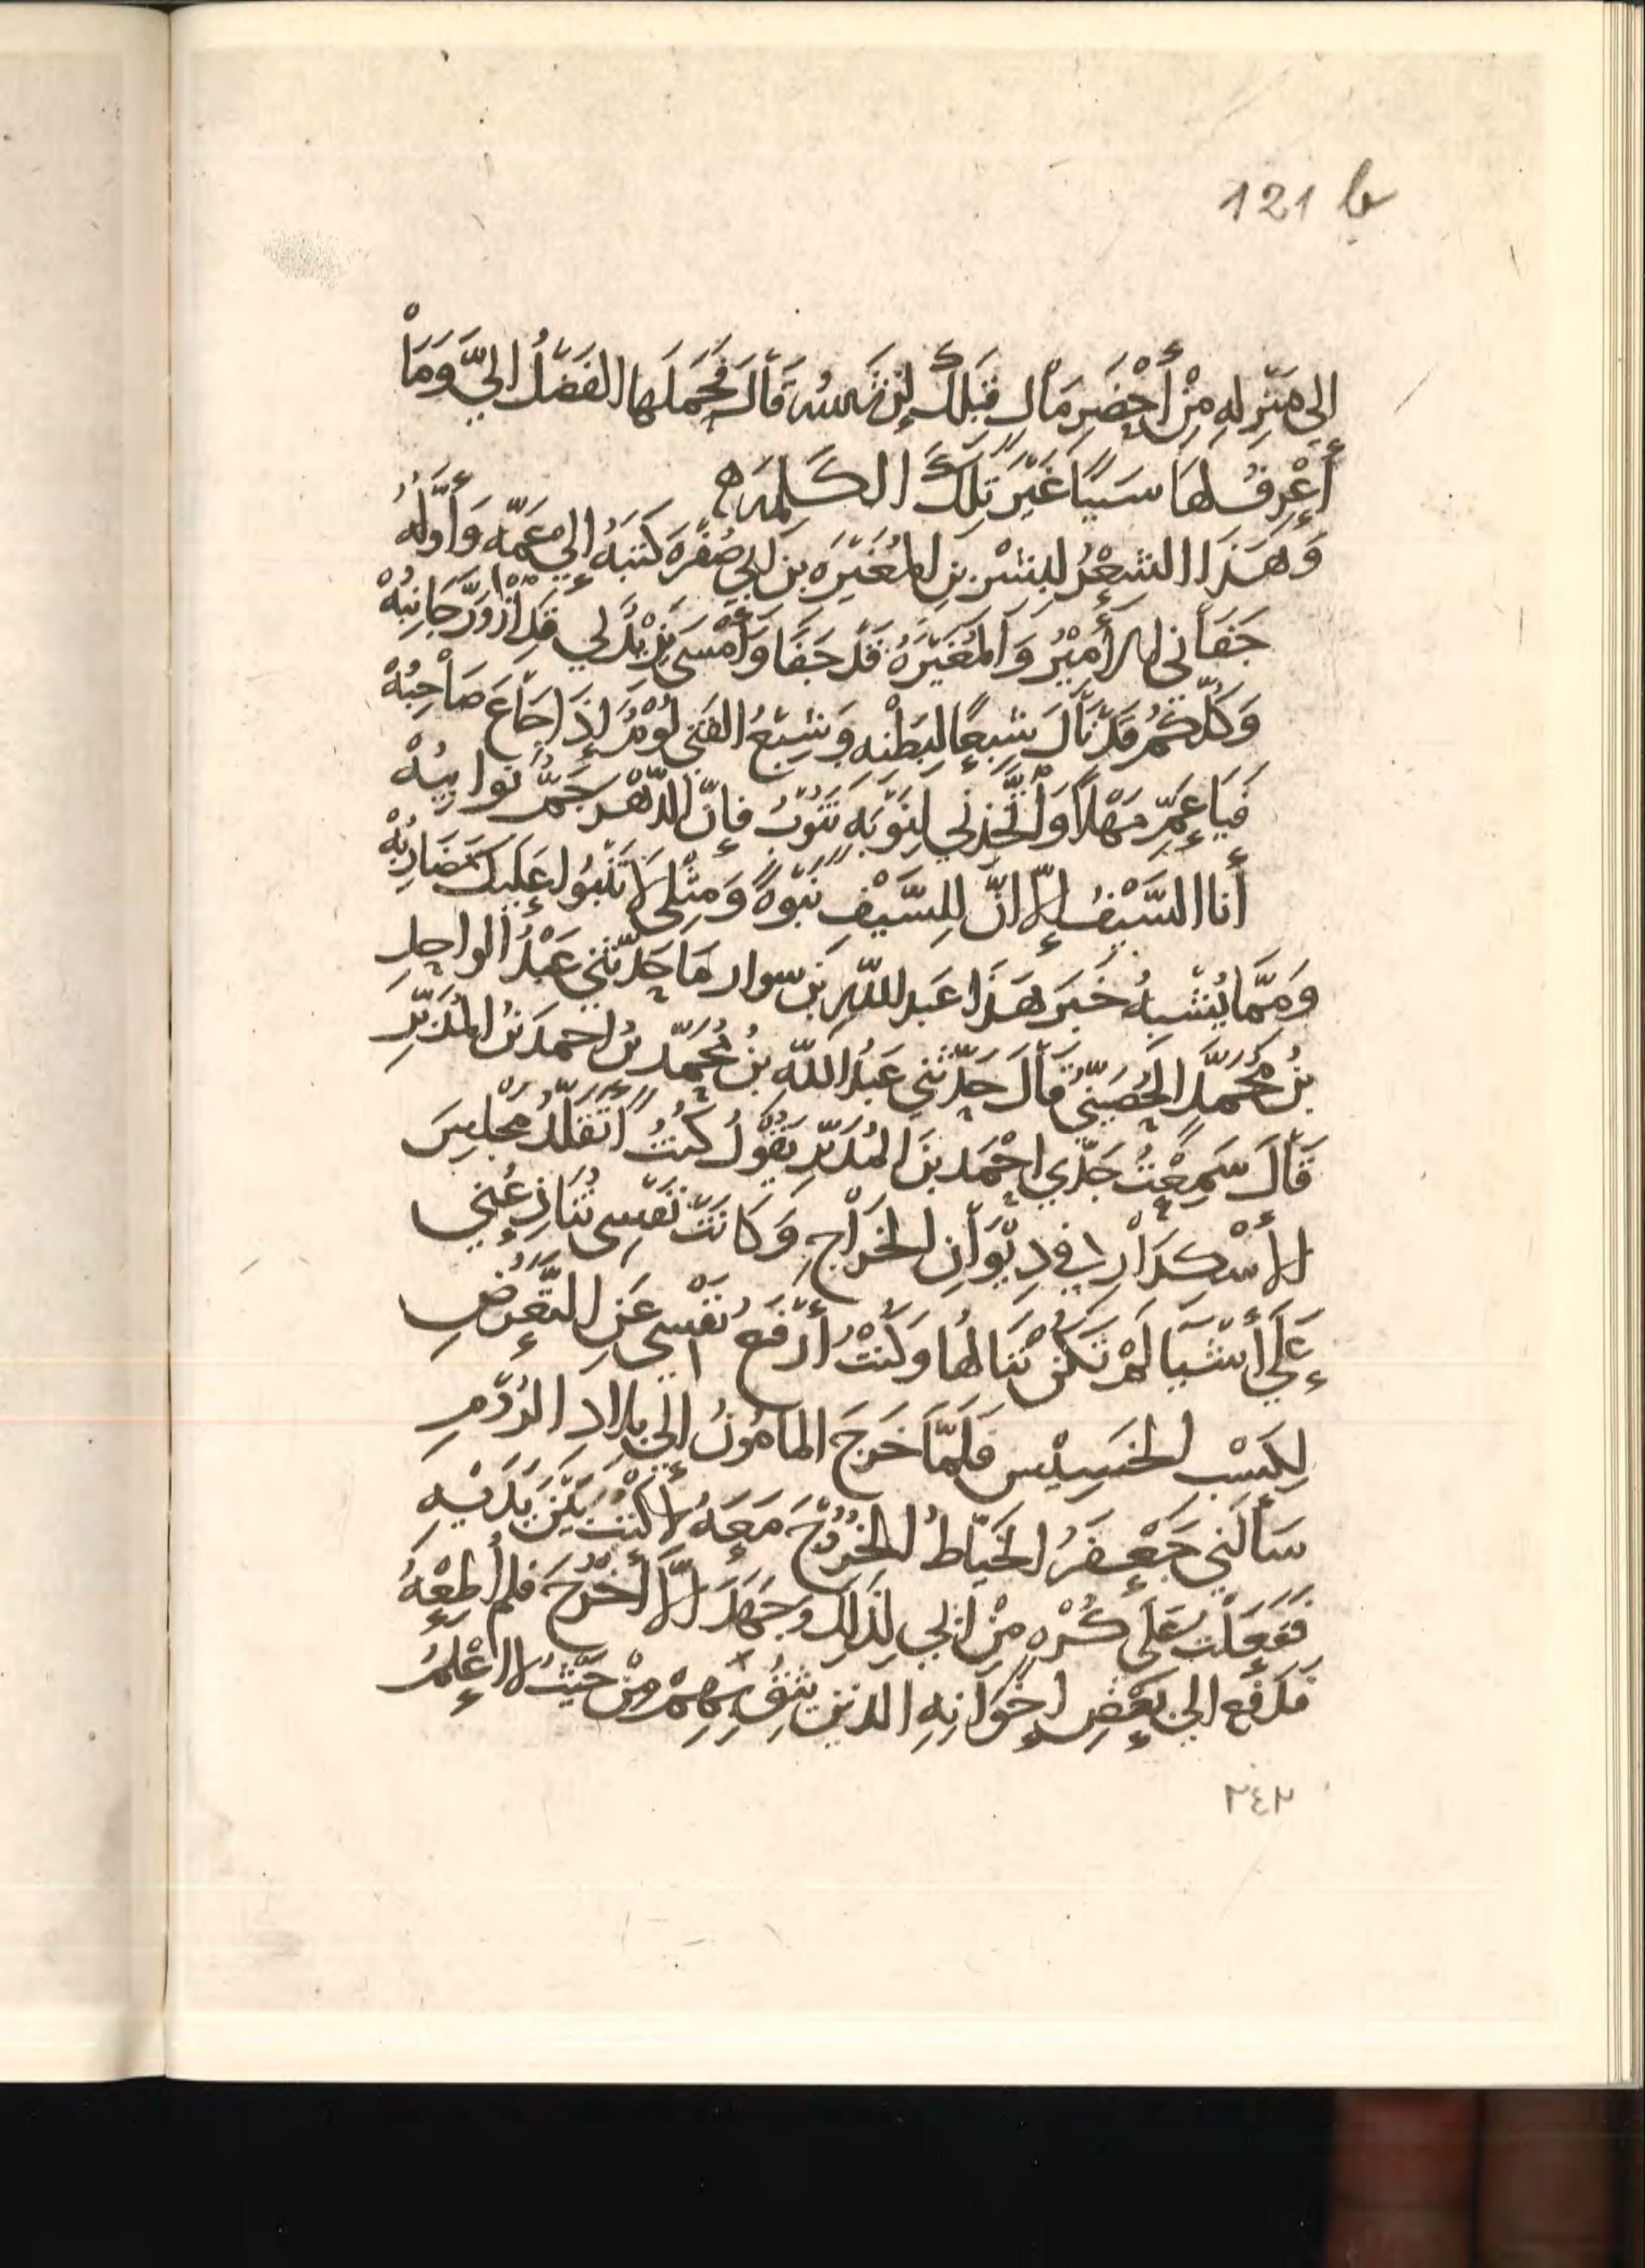 121 b
إلى مَنْزِلِهِ مِنْ أَحْضَرِ مَالٍ قِبَلَكَ قَالَ فَحَمَلَهَا الفَضْلُ إِلَيَّ وَمَا
أَعْرِفُ لَهَا سَبَبًا غَيْرَ تِلْكَ الكَلِمَةِ ه
وَهَذَا الشِّعْرُ لِبِشْرِ بنِ المُغِيرَةِ بنِ أبي صُفْرَةَ كَتَبَهُ إلى عَمِّهِ وَأَوَّلُهُ
جَفَانِي الأَمِيرُ وَالمُغِيرَةُ قَدْ جَفَا وَأَمْسَى يَزِيْدُ لِي قَدِ ازْوَرَّ جَانِبُهْ
وَكُلُّكُمُ قَدْ نَالَ شِبَعًا لِبَطْنِهِ وَشِبَعُ الفَتَى لُؤْمٌ إِذَا جَاعَ صَاحِبُهْ
فَيَا عَمِّ مَهْلًا وَاتَّخِذْنِي لِنَوْبَةٍ تَنُوْبُ فَإِنَّ الدَّهْرَ جَمٌّ نَوَائِبُهْ
أَنَا السَّيْفُ إِلَّا أَنَّ لِلسَّيْفِ نَبْوَةً وَمِثْلِي لَا تَنْبُو عَلَيْكَ مَضَارِبُهْ
وَمِمَّا يُشْبِهُ خَبَرَ هَذَا عَبد اللهِ بن سوار مَا حَدَّثَنِي عَبْدُ الواحِدِ
بنُ مُحَمَّدٍ الخَصِيْبِيُّ قَالَ حَدَّثَنِي عَبْدُ اللهِ بنُ مُحَمَّدِ بن احمَدَ بنُ المُدَبِّرِ
قَالَ سَمِعْتُ جَدِّي احْمَدَ بنَ المُدَبِّرِ يَقُوْلُ كُنْتُ أَتَقَلَّدُ مَجْلِسَ
الأُسْكِدَارِ فِي دِيْوَانِ الخَرَاجِ وَكَانَتْ نَفْسِي تُنَازِعُنِي
عَلَى أَشْيَا لَمْ تَكُنْ تَنَالُهَا وَكُنْتُ أَرْفَعُ نَفْسِي عَنِ التَّعَرُّضِ
لِكَسْبِ الخَسِيْسِ فَلَمَّا خَرَجَ المَامُونُ إِلَى بِلَادِ الرُّومِ
سَأَلَنِي جَعْفَرُ الخَيَّاطُ الخُرُوْجَ مَعَهُ لِأَكْتُبَ بَيْنَ يَدَيْهِ
فَفَعَلْتُ عَلَى كُرْهٍ مِنْ أَبِي لِذَلِكَ وَجَهَدَ أَلَّا أَخْرُجَ فَلَمْ أُطِعْهُ
فَدَفَعَ إِلَى بَعْضِ إِخْوَانِهِ الذِين يَثِقُ بِهِمْ مِنْ حَيْثُ لَا أَعْلَمُ
٢٤٢